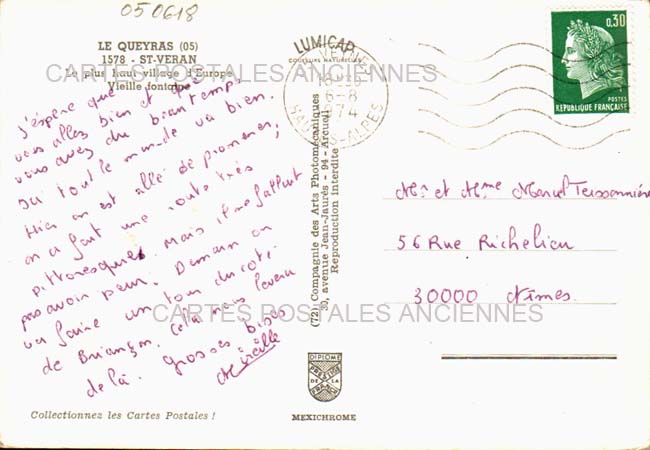 050618
LE QUEYRAS (05)
1578 - ST-VERAN
Le plus haut village d'Europe
Vieille fontaine
CARTES POSTALES ANCIENNES
j'espère que
vous allez bien et que
vous avez du beau temps,
ici tout le monde va bien.
Hier on est allé se promener,
on a fait une route très
pittoresque. Mais il ne fallait
pas avoir peur. Demain on
va faire un tour du côté
de Briançon.
de là. grosses bises
Mireille
Collectionnez les Cartes Postales !
LUMICAP
COULEURS NATURELLES
(72) Compagnie des Arts Photomécaniques
30, avenue Jean-Jaurès - 94 - Arcueil
Reproduction interdite
6-8
HAUTES-ALPES
0,30
POSTES
REPUBLIQUE FRANÇAISE
Mr et Mme Marcel Teissonnière
56 Rue Richelieu
30000 Nîmes
CARTES POSTALES ANCIENNES
DIPLOME
PRESTIGE
DE LA
FRANCE
MEXICHROME